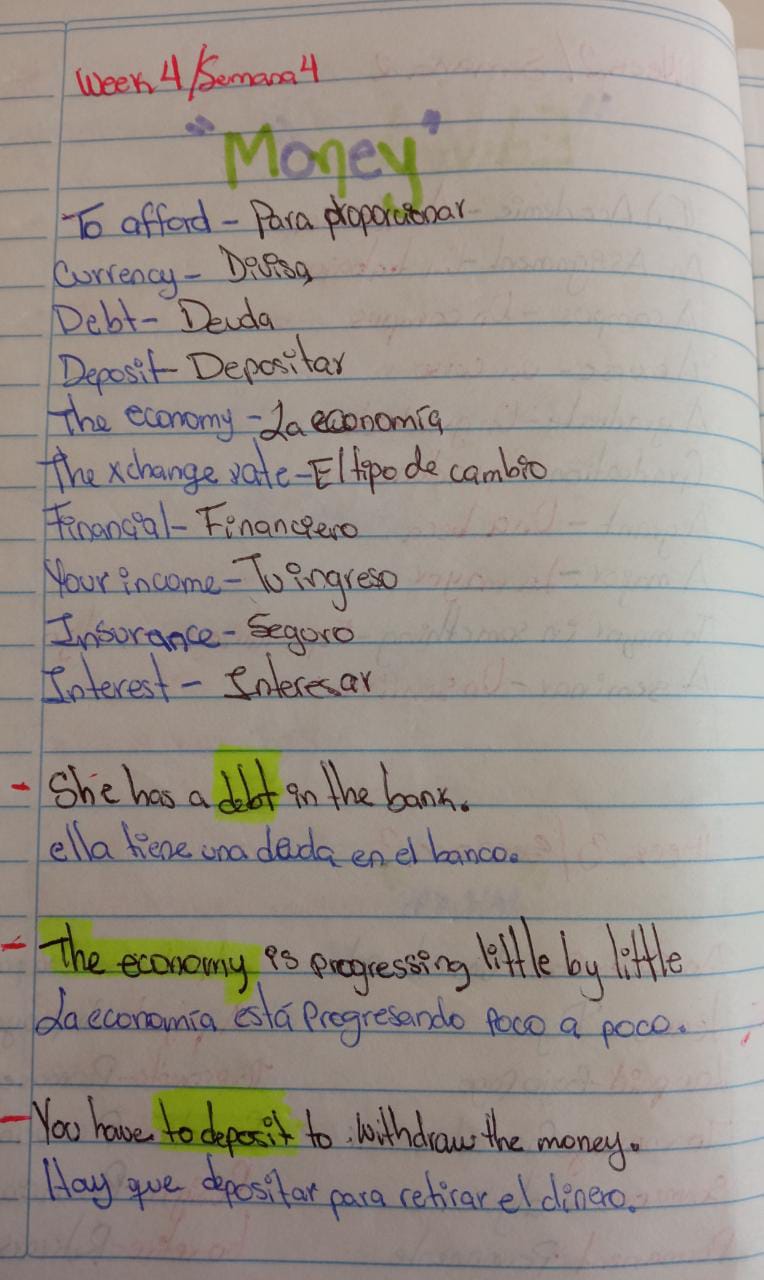 Week 4/Semana 4
"Money"
To afford - Para proporcionar
Currency - Divisa
Debt - Deuda
Deposit - Depositar
The economy - La economía
The xchange rate - El tipo de cambio
Financial - Financiero
Your income - Tu ingreso
Insurance - Seguro
Interest - Interesar
- She has a debt in the bank.
ella tiene una deuda en el banco.
- The economy is progressing little by little
La economía está Progresando poco a poco.
- You have to deposit to withdraw the money.
Hay que depositar para retirar el dinero.